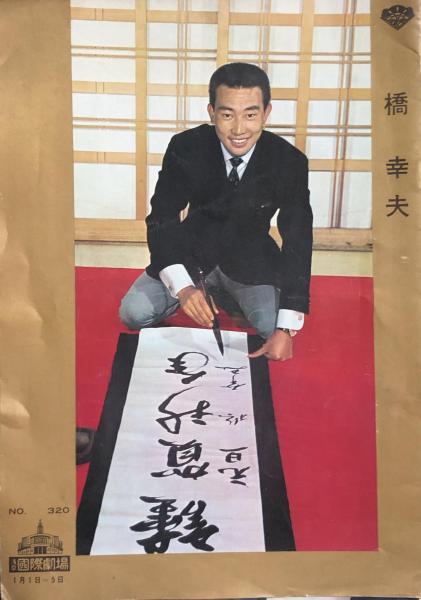 橋幸夫
謹賀新年
元旦 橋幸夫
NO. 320
國際劇場
1月1日─5日